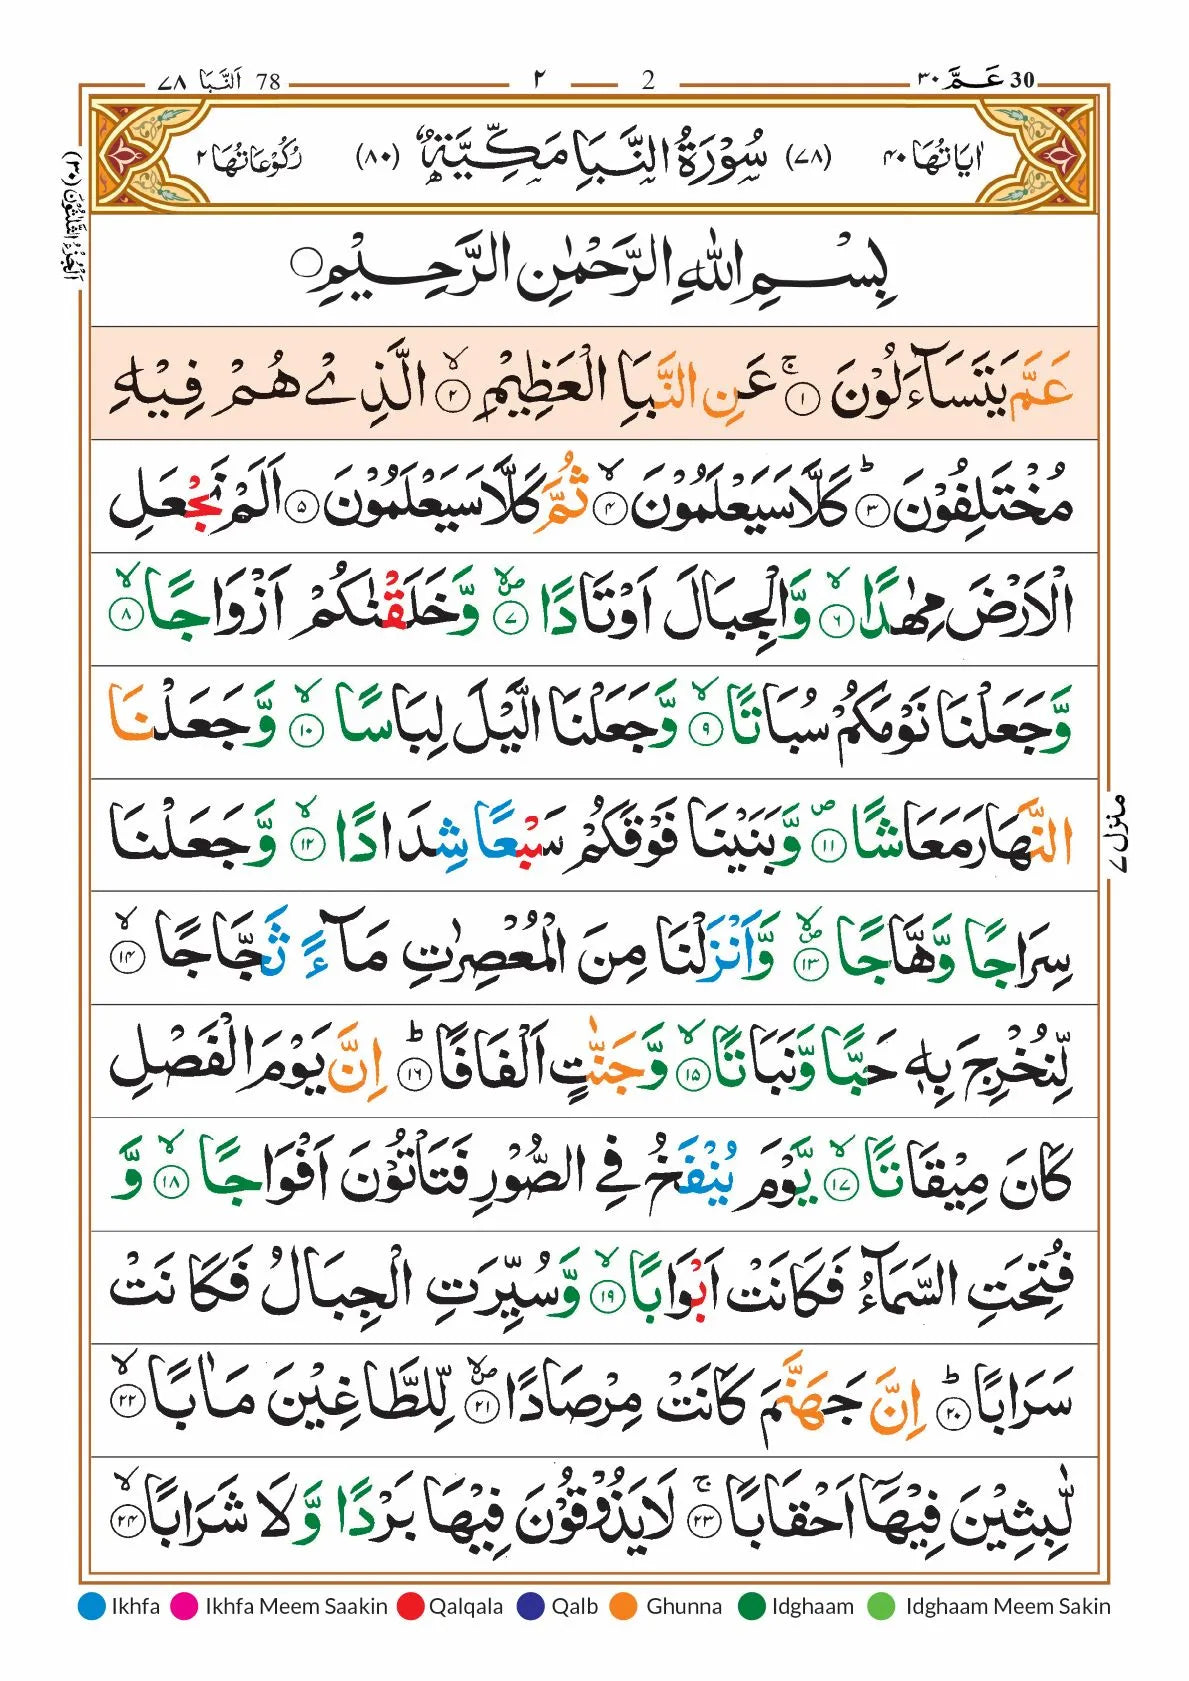 ٧٨ اَلنَّبَا 78 ٢ 2 ٣٠ عَمَّ 30
اٰيَاتُهَا ٤٠ (٧٨) سُوْرَةُ النَّبَاِ مَكِّيَّةٌ (٨٠) رُكُوْعَاتُهَا ٢
اَلْجُزْءُ الثَّلٰثُوْنَ (٣٠)
بِسْمِ اللهِ الرَّحْمٰنِ الرَّحِيْمِ
عَمَّ يَتَسَآءَلُوْنَ ۚ ١ عَنِ النَّبَاِ الْعَظِيْمِ ۙ ٢ الَّذِيْ هُمْ فِيْهِ
مُخْتَلِفُوْنَ ؕ ٣ كَلَّا سَيَعْلَمُوْنَ ۙ ٤ ثُمَّ كَلَّا سَيَعْلَمُوْنَ ٥ اَلَمْ نَجْعَلِ
الْاَرْضَ مِهٰدًا ۙ ٦ وَّالْجِبَالَ اَوْتَادًا ۪ۙ ٧ وَّخَلَقْنٰكُمْ اَزْوَاجًا ۙ ٨
وَّجَعَلْنَا نَوْمَكُمْ سُبَاتًا ۙ ٩ وَّجَعَلْنَا الَّيْلَ لِبَاسًا ۙ ١٠ وَّجَعَلْنَا
النَّهَارَ مَعَاشًا ۪ ١١ وَّبَنَيْنَا فَوْقَكُمْ سَبْعًا شِدَادًا ۙ ١٢ وَّجَعَلْنَا
سِرَاجًا وَّهَّاجًا ۪ۙ ١٣ وَّاَنْزَلْنَا مِنَ الْمُعْصِرٰتِ مَآءً ثَجَّاجًا ۙ ١٤
لِّنُخْرِجَ بِهٖ حَبًّا وَّنَبَاتًا ۙ ١٥ وَّجَنّٰتٍ اَلْفَافًا ؕ ١٦ اِنَّ يَوْمَ الْفَصْلِ
كَانَ مِيْقَاتًا ۙ ١٧ يَّوْمَ يُنْفَخُ فِي الصُّوْرِ فَتَاْتُوْنَ اَفْوَاجًا ۙ ١٨ وَّ
فُتِحَتِ السَّمَآءُ فَكَانَتْ اَبْوَابًا ۙ ١٩ وَّسُيِّرَتِ الْجِبَالُ فَكَانَتْ
سَرَابًا ؕ ٢٠ اِنَّ جَهَنَّمَ كَانَتْ مِرْصَادًا ۪ۙ ٢١ لِّلطَّاغِيْنَ مَاٰبًا ۙ ٢٢
لّٰبِثِيْنَ فِيْهَآ اَحْقَابًا ۚ ٢٣ لَا يَذُوْقُوْنَ فِيْهَا بَرْدًا وَّلَا شَرَابًا ۙ ٢٤
منزل ٧
Ikhfa Ikhfa Meem Saakin Qalqala Qalb Ghunna Idghaam Idghaam Meem Sakin